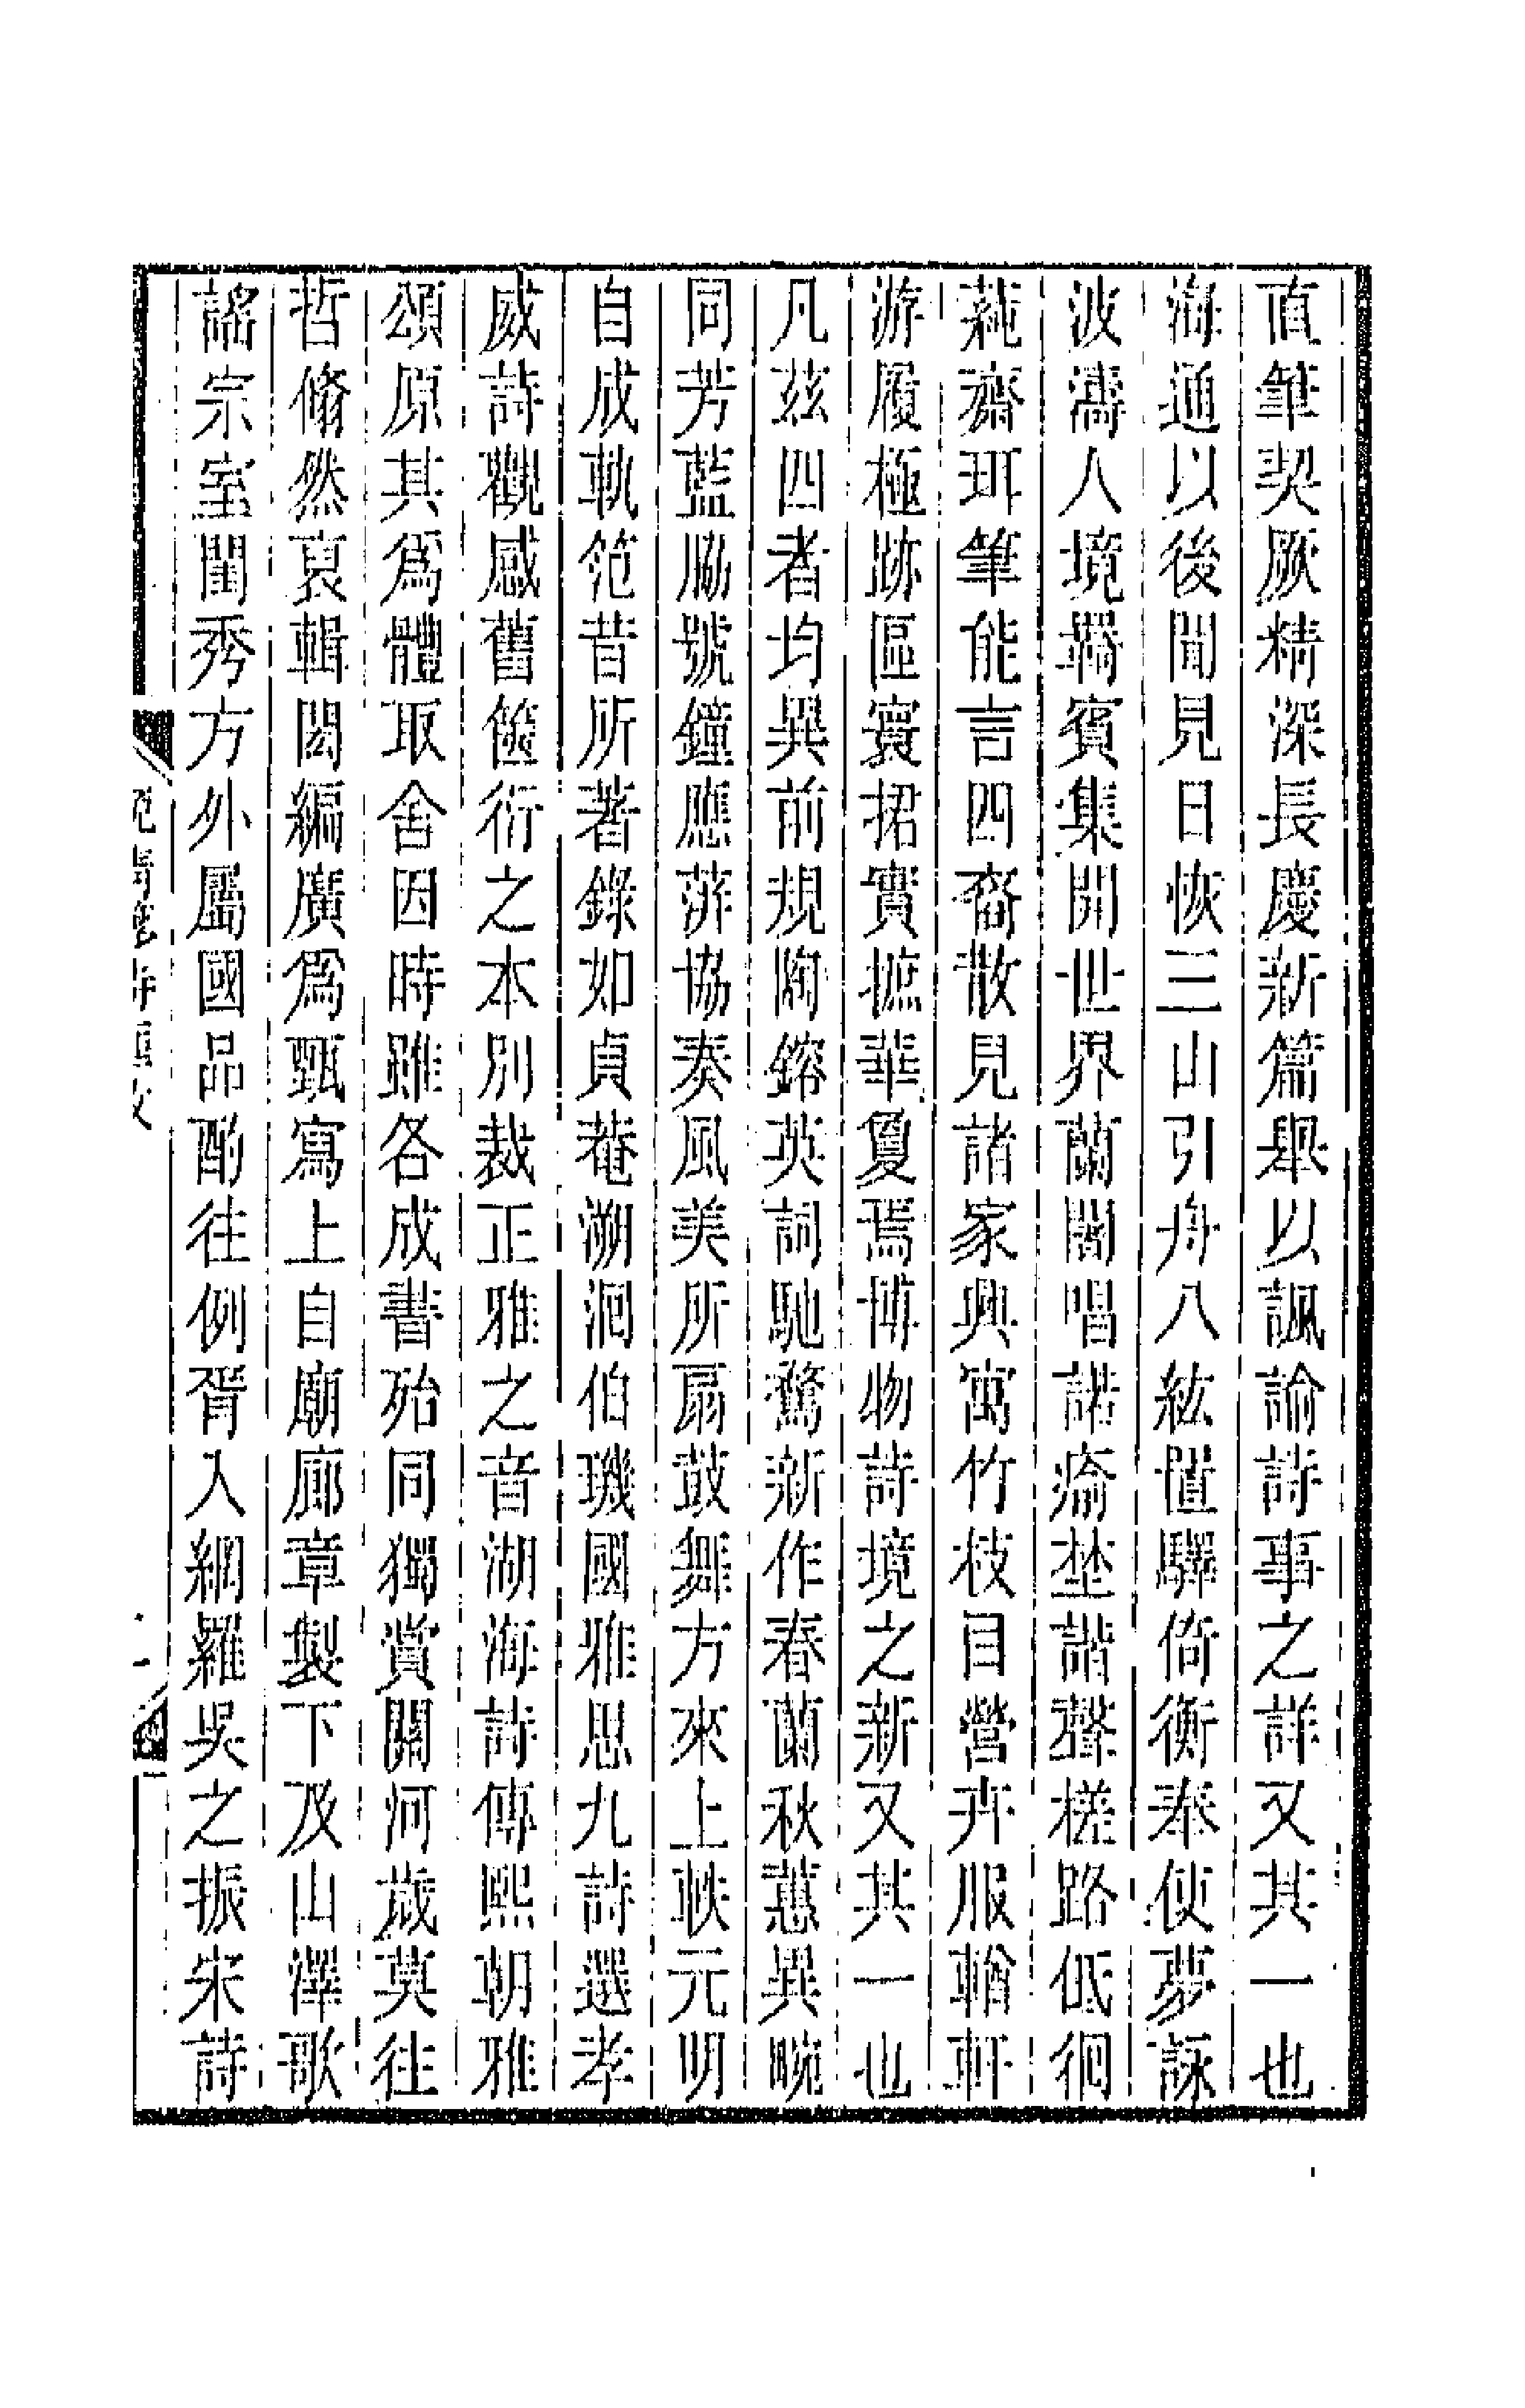 直筆契厥精深長慶新篇舉以諷諭詩事之詳又其一也
海通以後聞見日恢三山引舟八紘置驛倚衡奉使夢詠
波濤人境羈賓集開世界蘭闍唱諾瘉埜諧聲槎路低徊
蒓齋珥筆能言四裔散見諸家興寓竹枝目營卉服輶軒
游履極跡區寰捃實摭華夐焉博物詩境之新又其一也
凡茲四者均異前規陶鎔英詞馳騖新作春蘭秋蕙異畹
同芳藍脇號鐘應湃協奏風美所扇鼓舞方來上軼元明
自成軌範昔所著錄如貞菴溯洄伯璣國雅思九詩選孝
威詩觀感舊篋衍之本別裁正雅之音湖海詩傳熙朝雅
頌原其爲體取舍因時雖各成書殆同獨賞關河歲莫往
哲翛然裒輯閎編廣爲甄寫上自廟廊章製下及山澤歌
謠宗室閨秀方外屬國品酌往例胥入網羅吳之振宋詩
晚晴簃詩匯敘
二